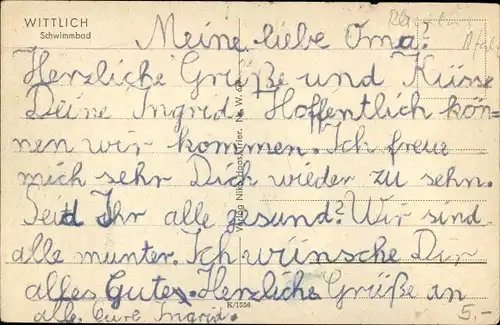 WITTLICH
Schwimmbad
Meine liebe Oma!
Herzliche Grüße und Küsse
Deine Ingrid. Hoffentlich kön-
nen wir kommen. Ich freue
mich sehr Dich wieder zu sehn.
Seid Ihr alle gesund? Wir sind
alle munter. Ich wünsche Dir
alles Gute. Herzliche Grüße an
alle. Eure Ingrid.
K/1556
5.-